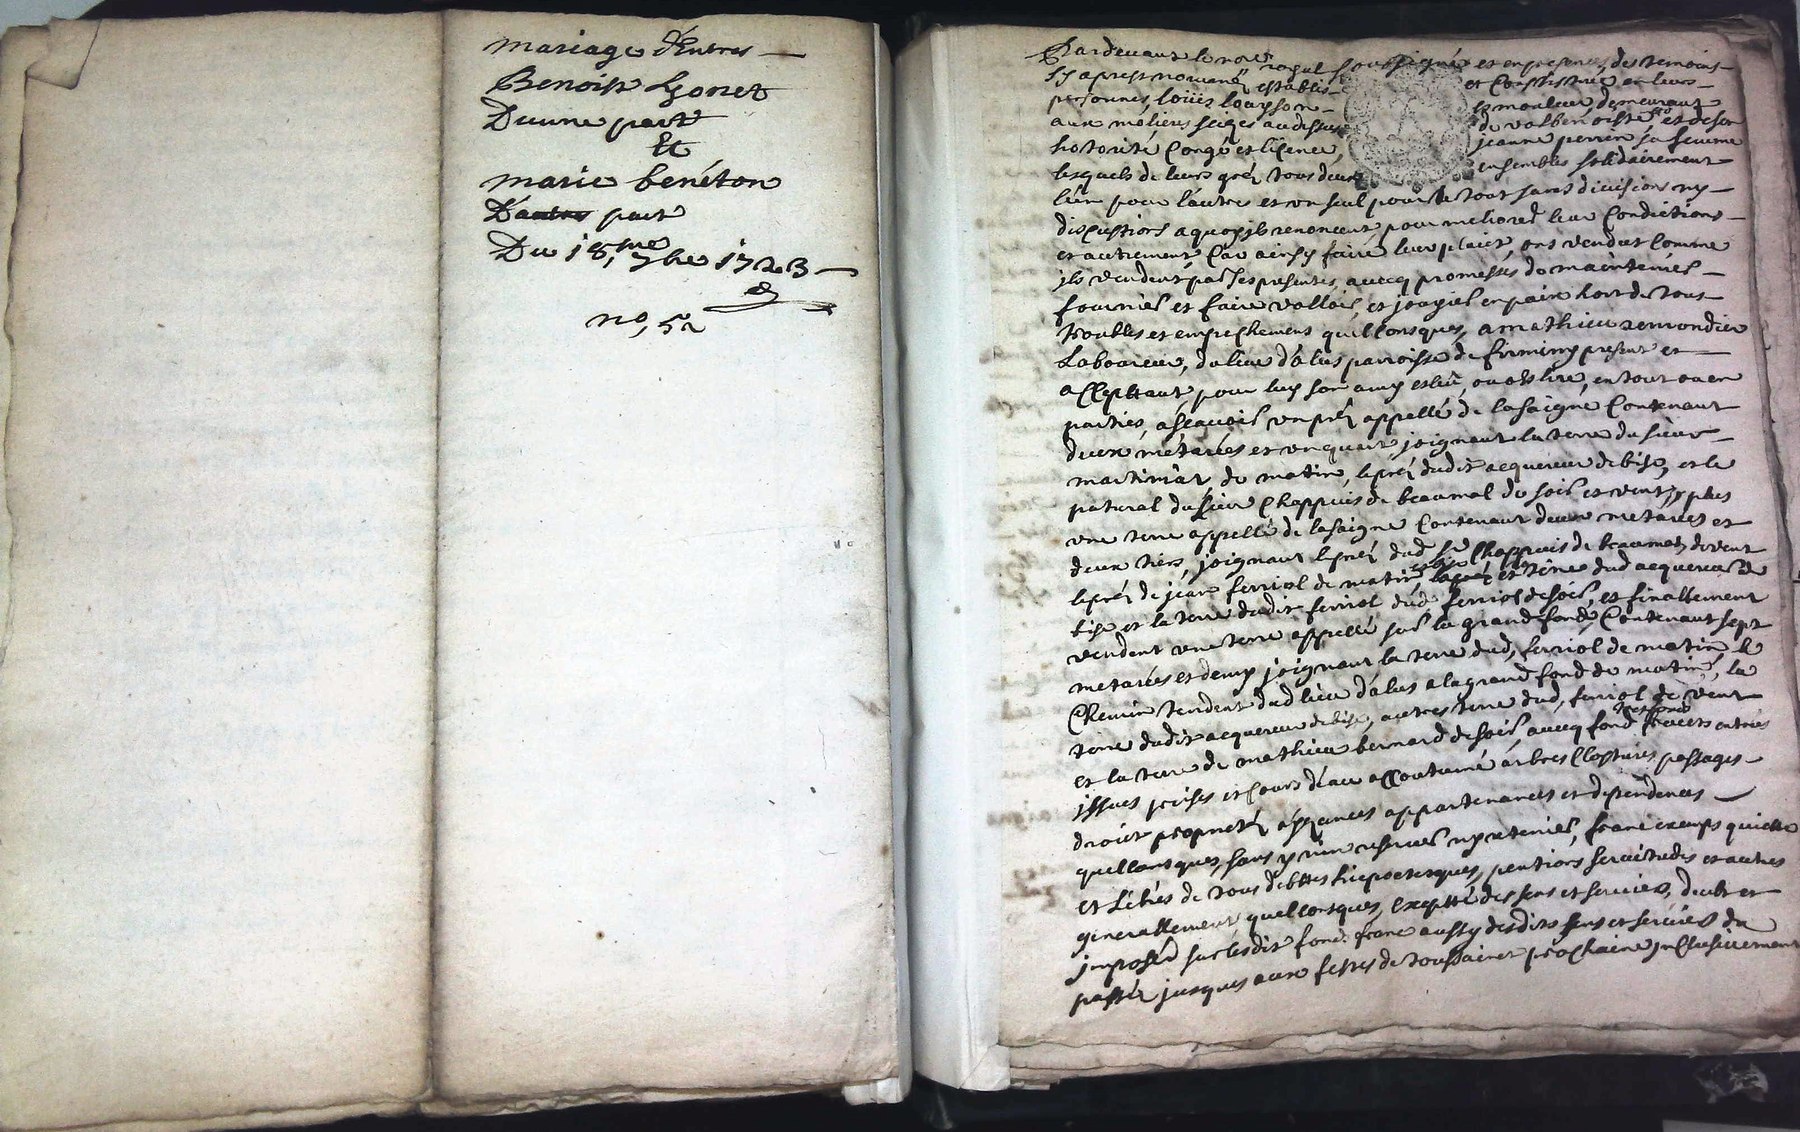 mariage d'Entres
Benoist Gonet
D'une part
Et
marie benéton
D'autres part
Du 18,me 7bre 1723
no, 52
Pardevant le nore royal soubsigné et en presences des temoins
cy apres nommés establis et Constitués en leurs
personnes, loüis loayson moulleur, demeurant
aux moliens seizes au dessus de valbenoiste et de son
hotorité Congé et lisence, jeanne perrin sa femme
lesquels de leurs gréz tous deux ensembles solidairement
l'un pour l'autres et un seul pour le tout sans divisions ny
discutions a quoy ils renoncent, pour meliorer leur Condictions
et autrement Car ainsy faire leur plait, ont vendut Comme
ils vendent par Ses presentes, avecq promesses de maintenir
fournir et faire valloir, et jouyr en paix hors de tous
troubles et empechement quelconsques, a mathieu remondier
Laboureur, du lieu d'alus parroisse de firminy present et
acCeptant, pour luy son amy esleu, ou a eslire, en tout ou en
parties, asçavoir un pré appellé de la saigne Contenant
deux métarées et un quart, joignant la terre du sieur
martinat, de matin, le pré dudit acquereur de bize, et le
patural du sieur Chappuis de beaumal de soir et vent, plus
une terre appellé de la saigne Contenant deux metarées et
deux tiers, joignant le pré dud sr Chappuis de beaumal de vent
le pré de jean ferriol de matin, et terre dud acquereur de
bise et la terre dudit ferriol de soir, et finallement
vendent une terre appellé sur la grand fond Contenant sept
metarées et demy joignant la terre dud, ferriol de matin, le
Chemin tendent dud lieu d'alus a la grand fond de matin, la
terre dudit acquereur de bise, autres terre dud, ferriol de vent
et la terre de mathieu bernard de soir, avecq fond tresfond entrées
issues prises et Cours d'eau acCoutumé arbres Closturés, passages
droits proprietéz aizances appartenances et dependences
quelconsques, sans y rien reserver ny retenir, franc exemps quitte
et libres de tous debttes hiepoteques, pentions servitudes et autres
generallement quelconsques, Exceptté des sens et services, deubt et
imposéd sur lesdit fond franc aussy desdits sens et services du
passéz jusques aux festes de toussaint prochaine inClusivement